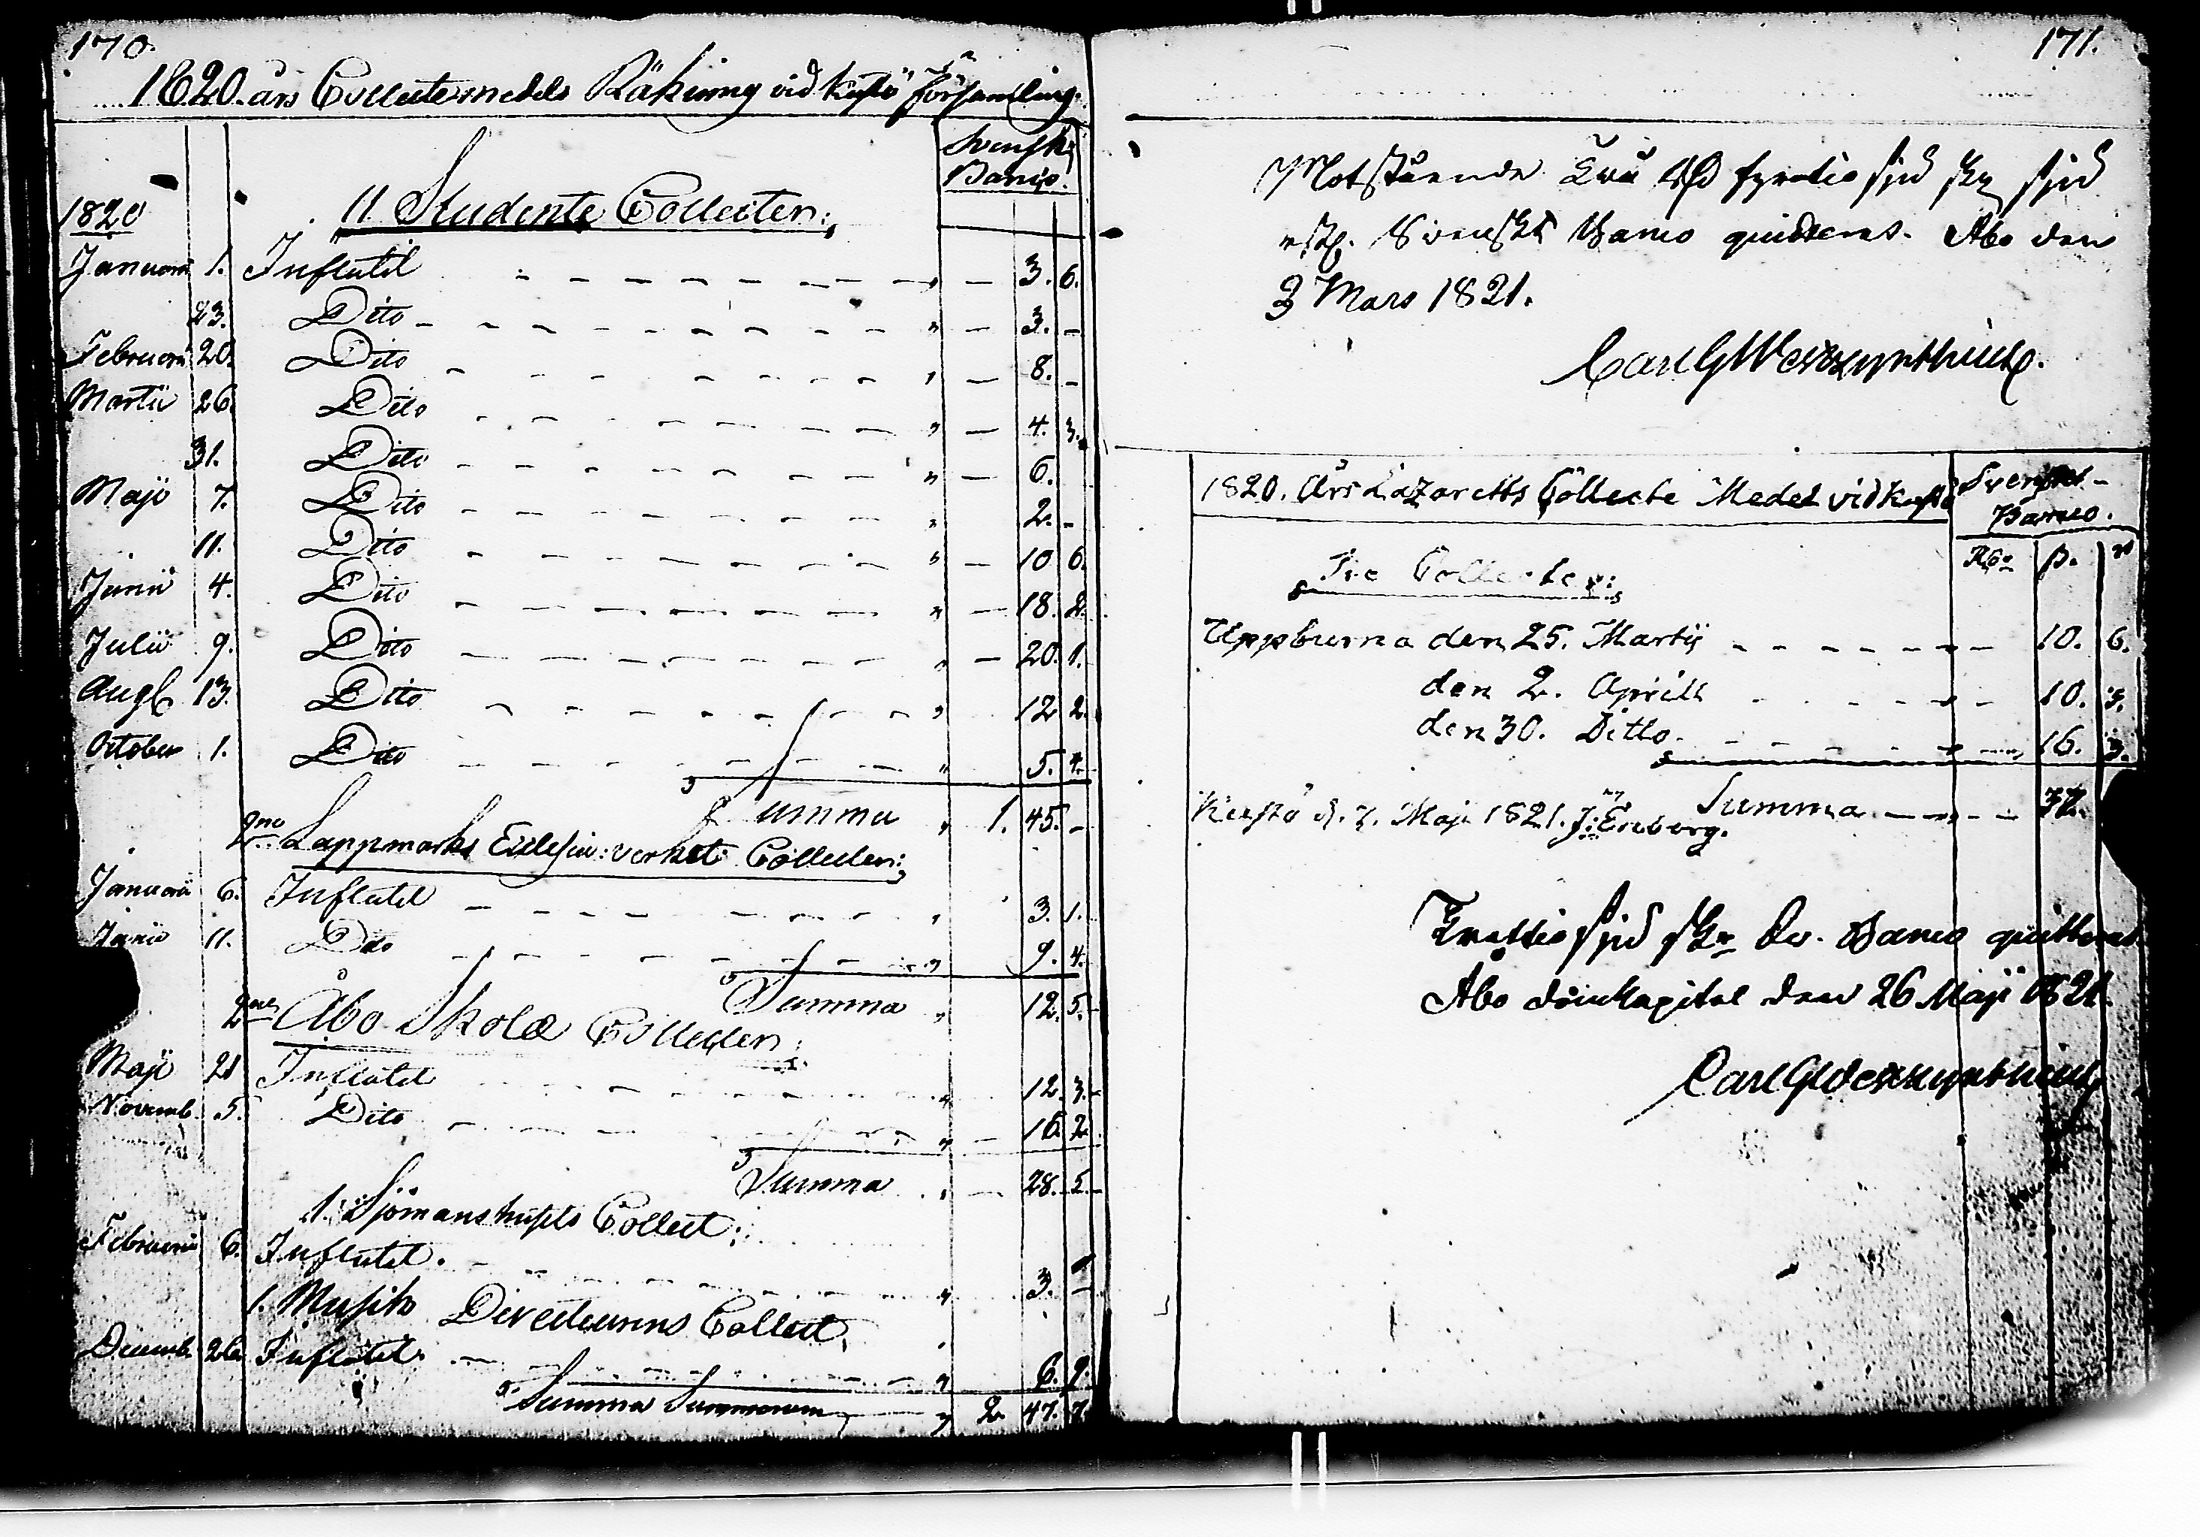 170.
1820. års Collectemedels Räkning vid Kustö församling.
Svensk
Banco.
1820 11 Studente Collecter:
Januarii 1. Influtit " — 3. 6.
23. Dito " — 3. —
Februarii 20. Dito " — 8. —
Martii 26. Dito " — 4. 3.
31. Dito " — 6.
Maji 7. Dito " 2. —
11. Dito " — 10 6.
Junii 4. Dito " — 18. 2.
Julii 9. Dito " — 20. 1.
Aug 13. Dito " 12 2.
October 1. Dito " 5. 4.
Summa " 1. 45. —
2ne Lappmarks Ecclesia: verket Collecter:
Januarii 6. Influtit " 3. 1.
Junii 11. Dito " 9. 4.
Summa " 12. 5.
2ne Åbo Skole Collecter:
Maji 21 Influtit " 12. 3.
Novemb. 5. Dito " — 16. 2
Summa " — 28. 5.
1. Sjömanshusets Collect:
Februarii 6. Influtit. " 3. —
1. Musik Directeurens Collect,
Decemb. 26. Influtit. " 6.
Summa Summarum " 2. 47.
171.
Motstående Två Rd fyratio sju sk sju
rst. Svenskt Banco quitteras. Åbo den
3 Mars 1821.
Carl G
1820. Års Lazaretts Collecte Medel vid Kustö
Svenskt
Banco.
Rdr ß. rs
Tre Collecter:
Uppburna den 25. Martij " — 10. 6.
den 2. Aprill " — 10. 3.
den 30. Ditto. " — 16. 3.
Kustö d. 7. Maji 1821. J: Eneberg. Summa — " — 37.
Trettio sju sk Sv. Banco quitteras
Åbo domkapitel den 26 Maji 1821.
Carl G